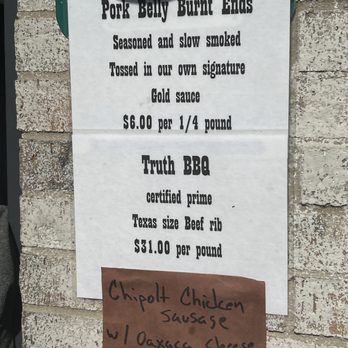 Pork Belly Burnt Ends
Seasoned and slow smoked
Tossed in our own signature
Gold sauce
$6.00 per 1/4 pound
Truth BBQ
certified prime
Texas size Beef rib
$31.00 per pound
Chipolt Chicken
Sausage
w/ Oaxaca cheese